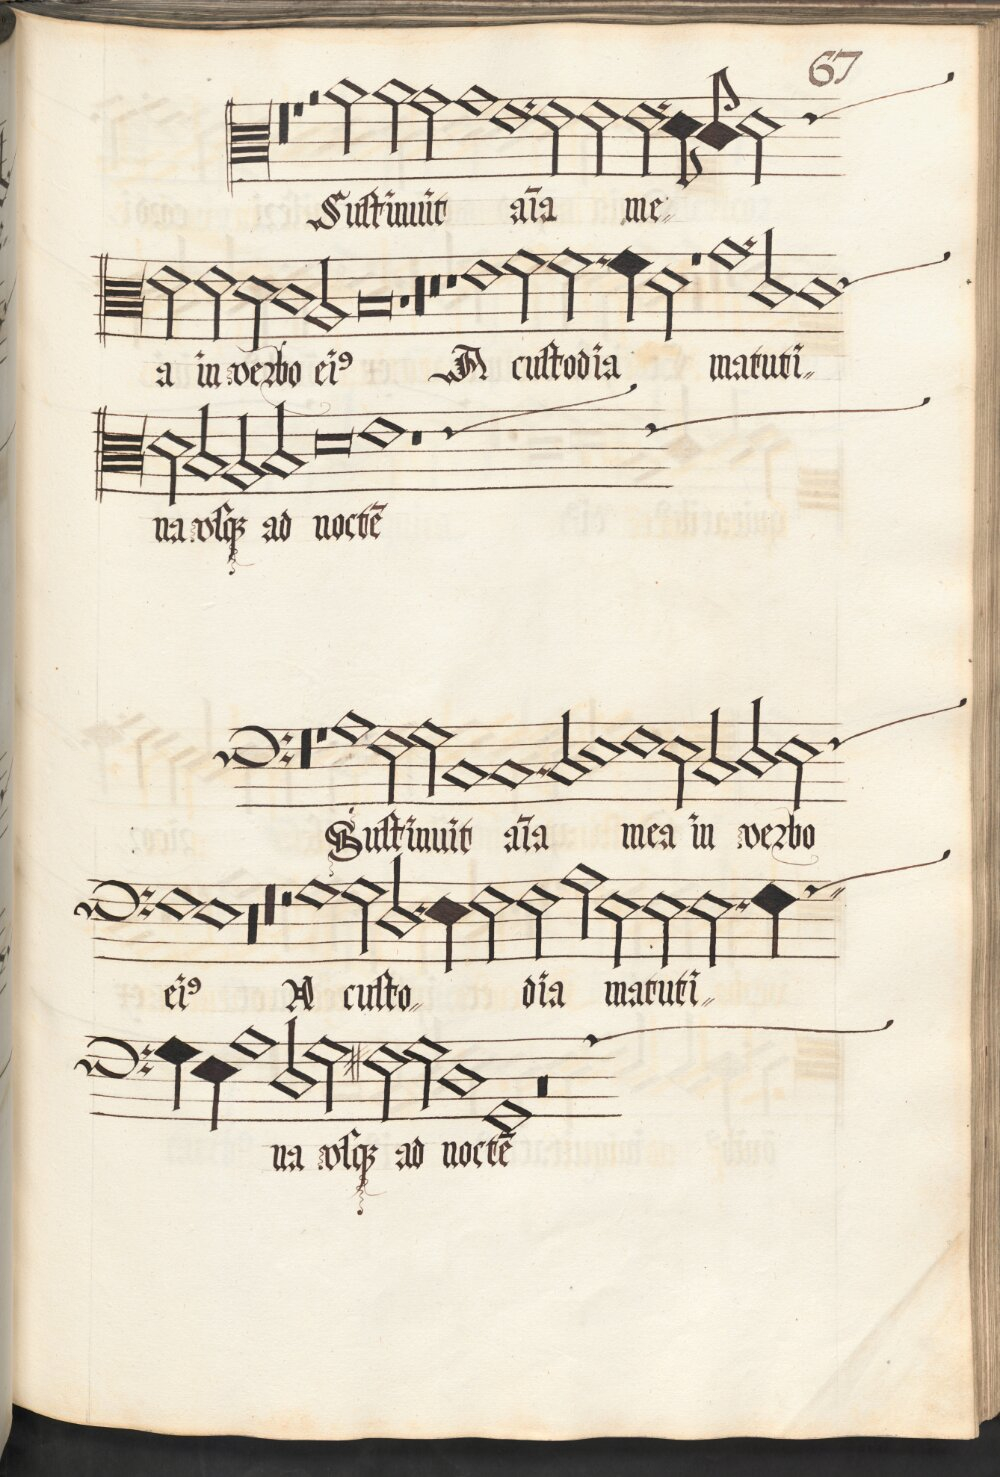 67
Sustinuit aīa me〃
a in verbo ei⁹ A custodia matuti〃
na vsqꝫ ad noctē
Sustinuit aīa mea in verbo
ei⁹ A custo〃 dia matuti〃
na vsqꝫ ad noctē